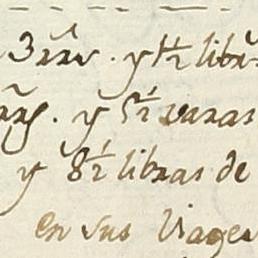 y 1½ libr̃
y 5½ varas
y 8½ libras de
en sus Viages